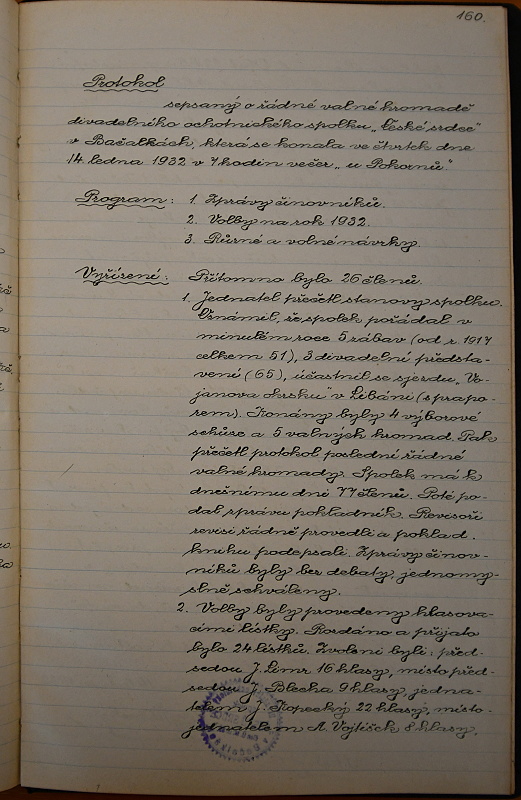 160.
Protokol
sepsaný o řádné valné hromadě
divadelního ochotnického spolku „České srdce"
v Bačalkách, která se konala ve čtvrtek dne
14. ledna 1932 v 7 hodin večer „u Pokornů"
Program: 1. Zprávy činovníků.
2. Volby na rok 1932.
3. Různé a volné návrhy.
Vyřízení: Přítomno bylo 26 členů.
1. Jednatel přečetl stanovy spolku.
Oznámil, že spolek pořádal v
minulém roce 5 zábav (od r. 1917
celkem 51), 3 divadelní předsta-
vení (65), účastnil se sjezdu „Vo-
janova okrsku" v Libáni (s prapo-
rem). Konány byly 4 výborové
schůze a 5 valných hromad. Pak
přečetl protokol poslední řádné
valné hromady. Spolek má k
dnešnímu dni 77 členů. Poté po-
dal zprávu pokladník. Revisoři
revisi řádně provedli a poklad.
knihu podepsali. Zprávy činov-
níků byly bez debaty jednomy-
slně schváleny.
2. Volby byly provedeny hlasova-
cími lístky. Rozdáno a přijato
bylo 24 lístků. Zvoleni byli: před-
sedou J. 16 hlasy, místopřed-
sedou J. Blecha 9 hlasy, jedna-
telem J. Kopecký 22 hlasy, místo-
jednatelem A. Vojtíšek 8 hlasy,